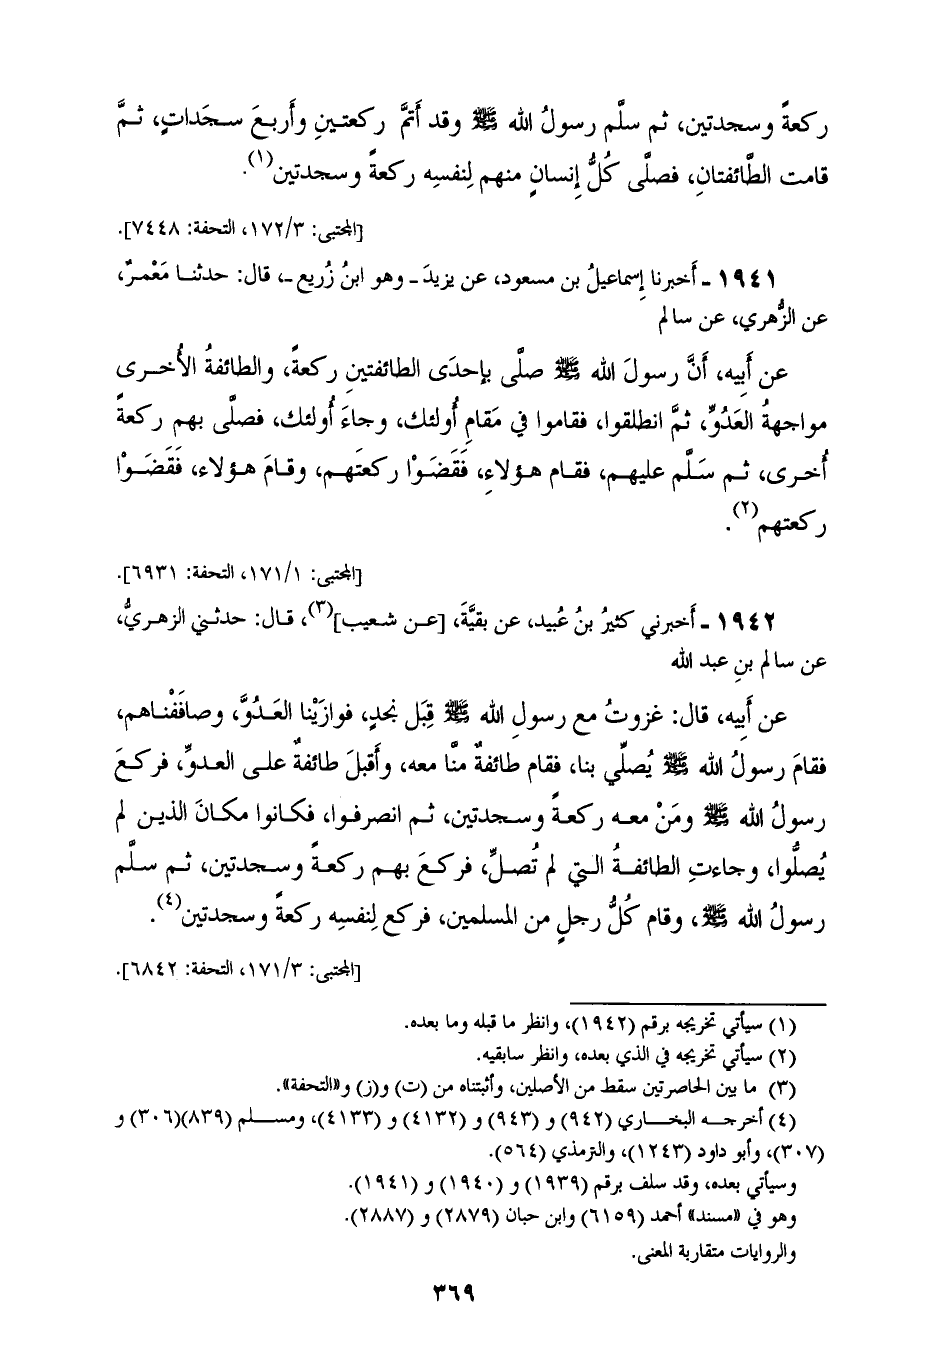 ركعةً وسجدتين، ثم سلَّم رسولُ الله ﷺ وقد أَتمَّ ركعتـينِ وأَربـعَ سـجَداتٍ، ثـمَّ
قامت الطَّائفتانِ، فصلَّى كُلُّ إِنسانٍ منهم لِنفسِه ركعةً وسجدتين(١).
[المجتبى: ١٧٢/٣، التحفة: ٧٤٤٨].
١٩٤١ ـ أَخبرنا إِسماعيلُ بن مسعود، عن يزيدَ ـ وهو ابنُ زُريع ـ، قال: حدثنـا مَعْمـرٌ،
عن الزُّهري، عن سالم
عن أَبيه، أَنَّ رسولَ الله ﷺ صلَّى بإحدَى الطائفتينِ ركعةً، والطائفةُ الأُخـرى
مواجهةُ العَدُوِّ، ثمَّ انطلقوا، فقاموا في مَقامِ أُولئك، وجاءَ أُولئك، فصلَّى بهم ركعةً
أُخـرى، ثـم سَـلَّم عليهـم، فقـام هـؤلاءِ، فَقَضَـوْا ركعتَهـم، وقـامَ هـؤلاء، فَقَضَـوْا
ركعتهم(٢).
[المجتبى: ١٧١/١، التحفة: ٦٩٣١].
١٩٤٢ ـ أَخبرني كثيرُ بنُ عُبيد، عن بقيَّةَ، [عـن شـعيب](٣)، قـال: حدثـني الزهـريُّ،
عن سالم بنِ عبد الله
عن أَبيه، قال: غزوتُ مع رسولِ الله ﷺ قِبَل نجدٍ، فوازَيْنا العَـدُوَّ، وصافَفْنـاهـم،
فقامَ رسولُ الله ﷺ يُصلِّي بنا، فقام طائفةٌ منَّا معه، وأَقبلَ طائفةٌ علـى العـدوِّ، فركـعَ
رسولُ الله ﷺ ومَنْ معـه ركعـةً وسـجدتين، ثـم انصرفـوا، فكـانوا مكـانَ الذيـن لم
يُصلُّوا، وجاءتِ الطائفـةُ الـتي لم تُصـلِّ، فركـعَ بهـم ركعـةً وسـجدتين، ثـم سـلَّم
رسولُ الله ﷺ، وقام كُلُّ رجلٍ من المسلمين، فركع لِنفسِه ركعةً وسجدتين(٤).
[المجتبى: ١٧١/٣، التحفة: ٦٨٤٢].
(١) سيأتي تخريجه برقم (١٩٤٢)، وانظر ما قبله وما بعده.
(٢) سيأتي تخريجه في الذي بعده، وانظر سابقيه.
(٣) ما بين الحاصرتين سقط من الأصلين، وأثبتناه من (ت) و(ز) و«التحفة».
(٤) أخرجـه البخـاري (٩٤٢) و (٩٤٣) و (٤١٣٢) و (٤١٣٣)، ومسـلم (٨٣٩)(٣٠٦) و
(٣٠٧)، وأبو داود (١٢٤٣)، والترمذي (٥٦٤).
وسيأتي بعده، وقد سلف برقم (١٩٣٩) و (١٩٤٠) و (١٩٤١).
وهو في «مسند» أحمد (٦١٥٩) وابن حبان (٢٨٧٩) و (٢٨٨٧).
والروايات متقاربة المعنى.
٣٦٩